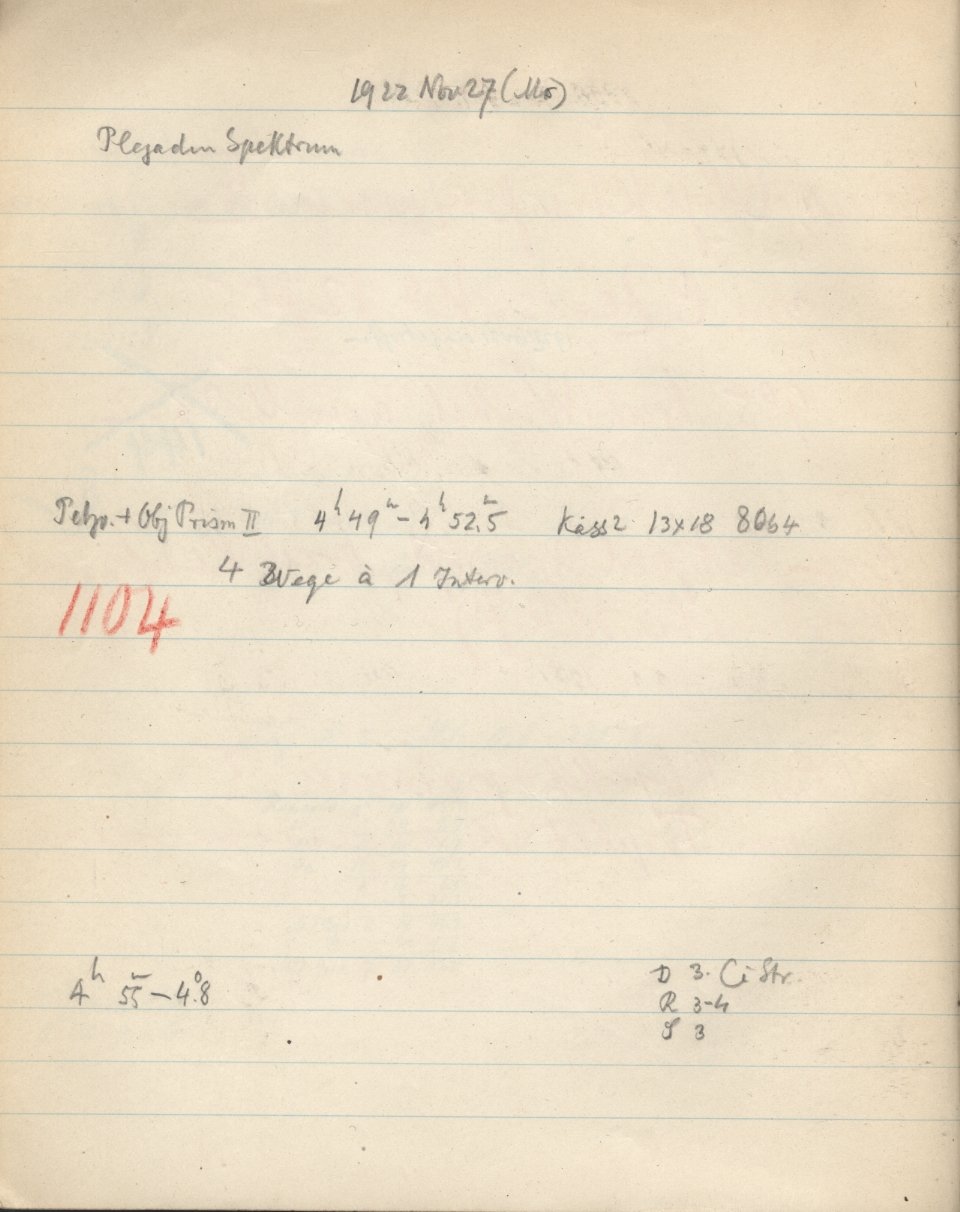 1922 Nov 27 (Mo)
Plejaden Spektrum
Petzv. + Obj Prism II 4h 49m – 4h 52m,5 Kass 2 13x18 8064
4 Wege à 1 Interv.
1104
4h 55m – 4°.8
D 3. Ci Str.
R 3-4
S 3